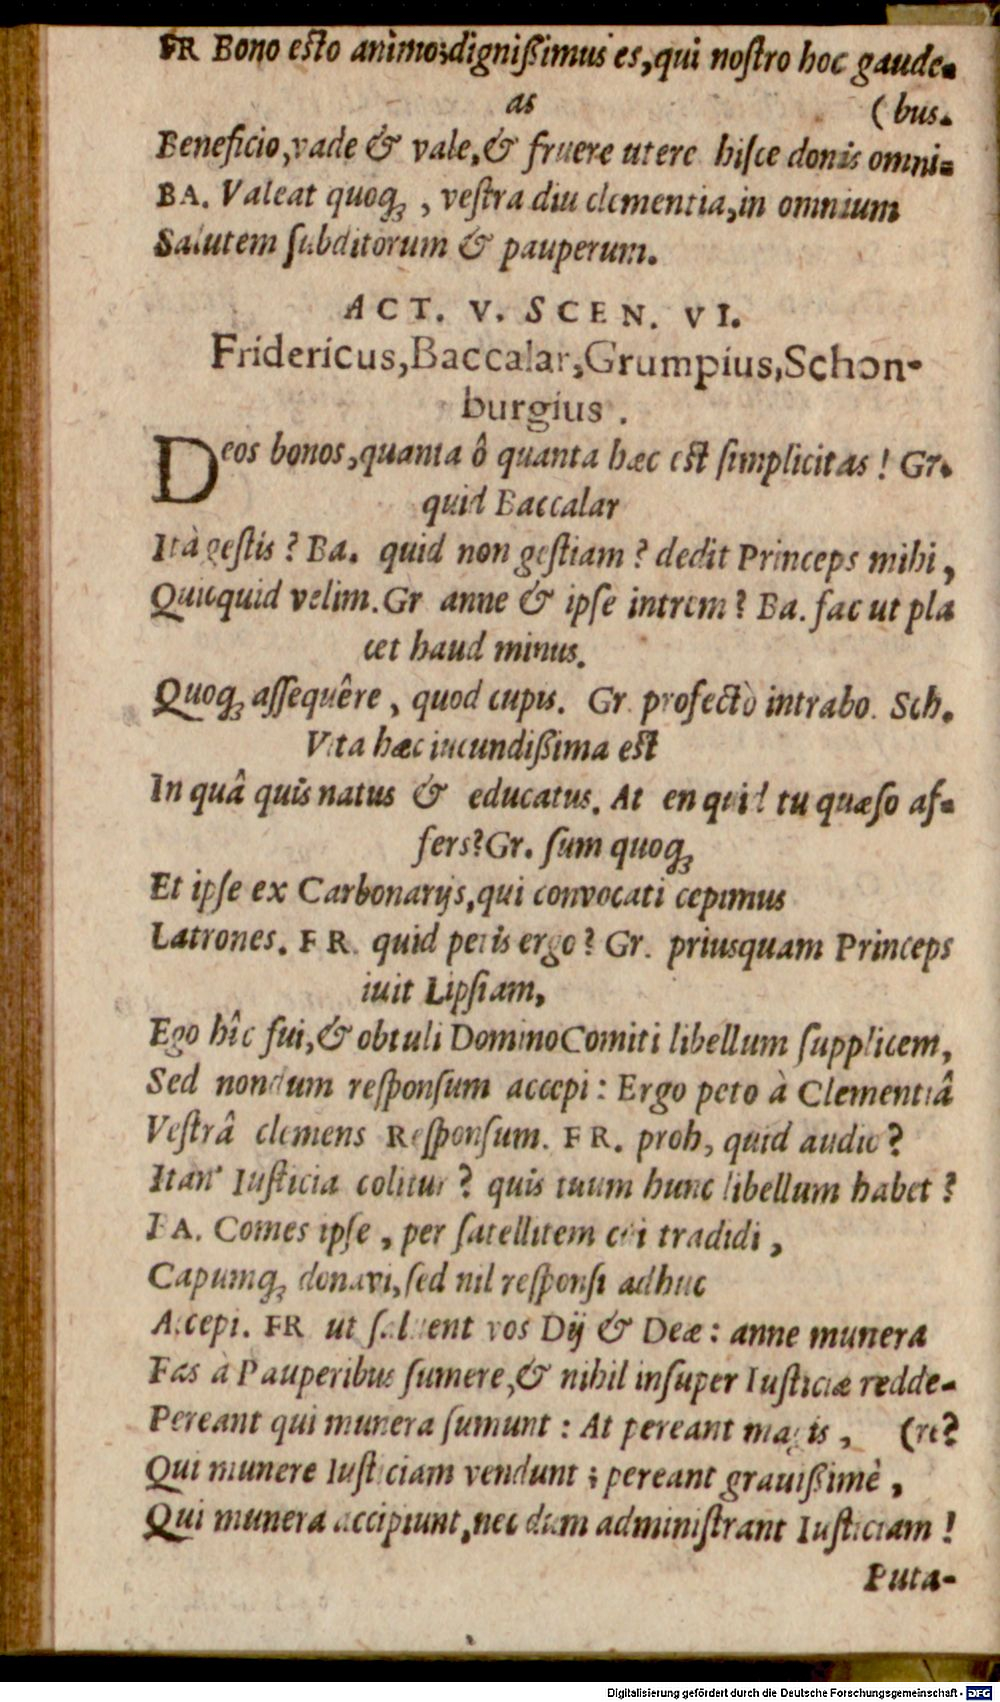 FR Bono esto animo;dignißimus es,qui nostro hoc gaude-
as (bus.
Beneficio,vade & vale,& fruere utere hisce donis omni-
BA. Valeat quoq; , vestra diu clementia,in omnium
Salutem subditorum & pauperum.
ACT. V. SCEN. VI.
Fridericus,Baccalar,Grumpius,Schon-
burgius .
Deos bonos,quanta ô quanta hæc est simplicitas ! Gr.
quid Baccalar
Ità gestis ? Ba. quid non gestiam ? dedit Princeps mihi ,
Quicquid velim.Gr anne & ipse intrem ? Ba. fac ut pla
cet haud minus.
Quoq; assequêre , quod cupis. Gr. profectò intrabo. Sch.
Vita hæc iucundißima est
In quâ quis natus & educatus. At en quid tu quæso af-
fers?Gr. sum quoq;
Et ipse ex Carbonarijs,qui convocati cepimus
Latrones. FR. quid petis ergo ? Gr. priusquam Princeps
iuit Lipsiam,
Ego hîc fui,& obtuli Domino Comiti libellum supplicem,
Sed nondum responsum accepi : Ergo peto à Clementiâ
Vestrâ clemens Responsum. FR. proh, quid audio ?
Itan' Iusticia colitur ? quis tuum hunc libellum habet ?
BA. Comes ipse , per satellitem cui tradidi ,
Capumq; donavi,sed nil responsi adhuc
Accepi. FR ut salvent vos Dij & Deæ : anne munera
Fas à Pauperibus sumere,& nihil insuper Iusticiæ redde-
Pereant qui munera sumunt : At pereant magis , (re?
Qui munere Iusticiam vendunt ; pereant grauißimè ,
Qui munera accipiunt,nec dum administrant Iusticiam !
Puta-
Digitalisierung gefördert durch die Deutsche Forschungsgemeinschaft - DFG